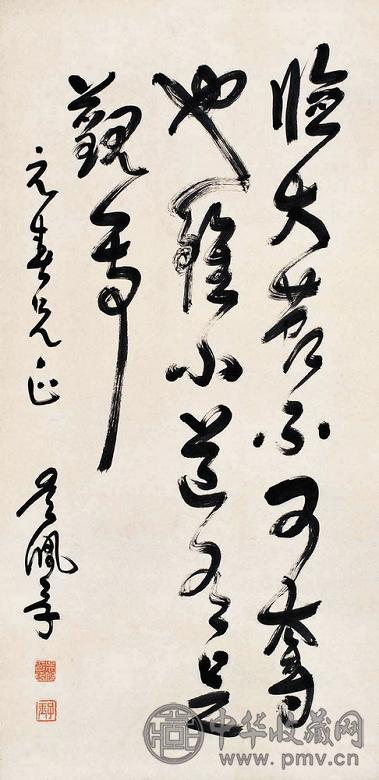 臨大節不可奪
也雖小道有足
觀焉
元春兄正
吴佩孚
中华收藏网
www.pmv.cn